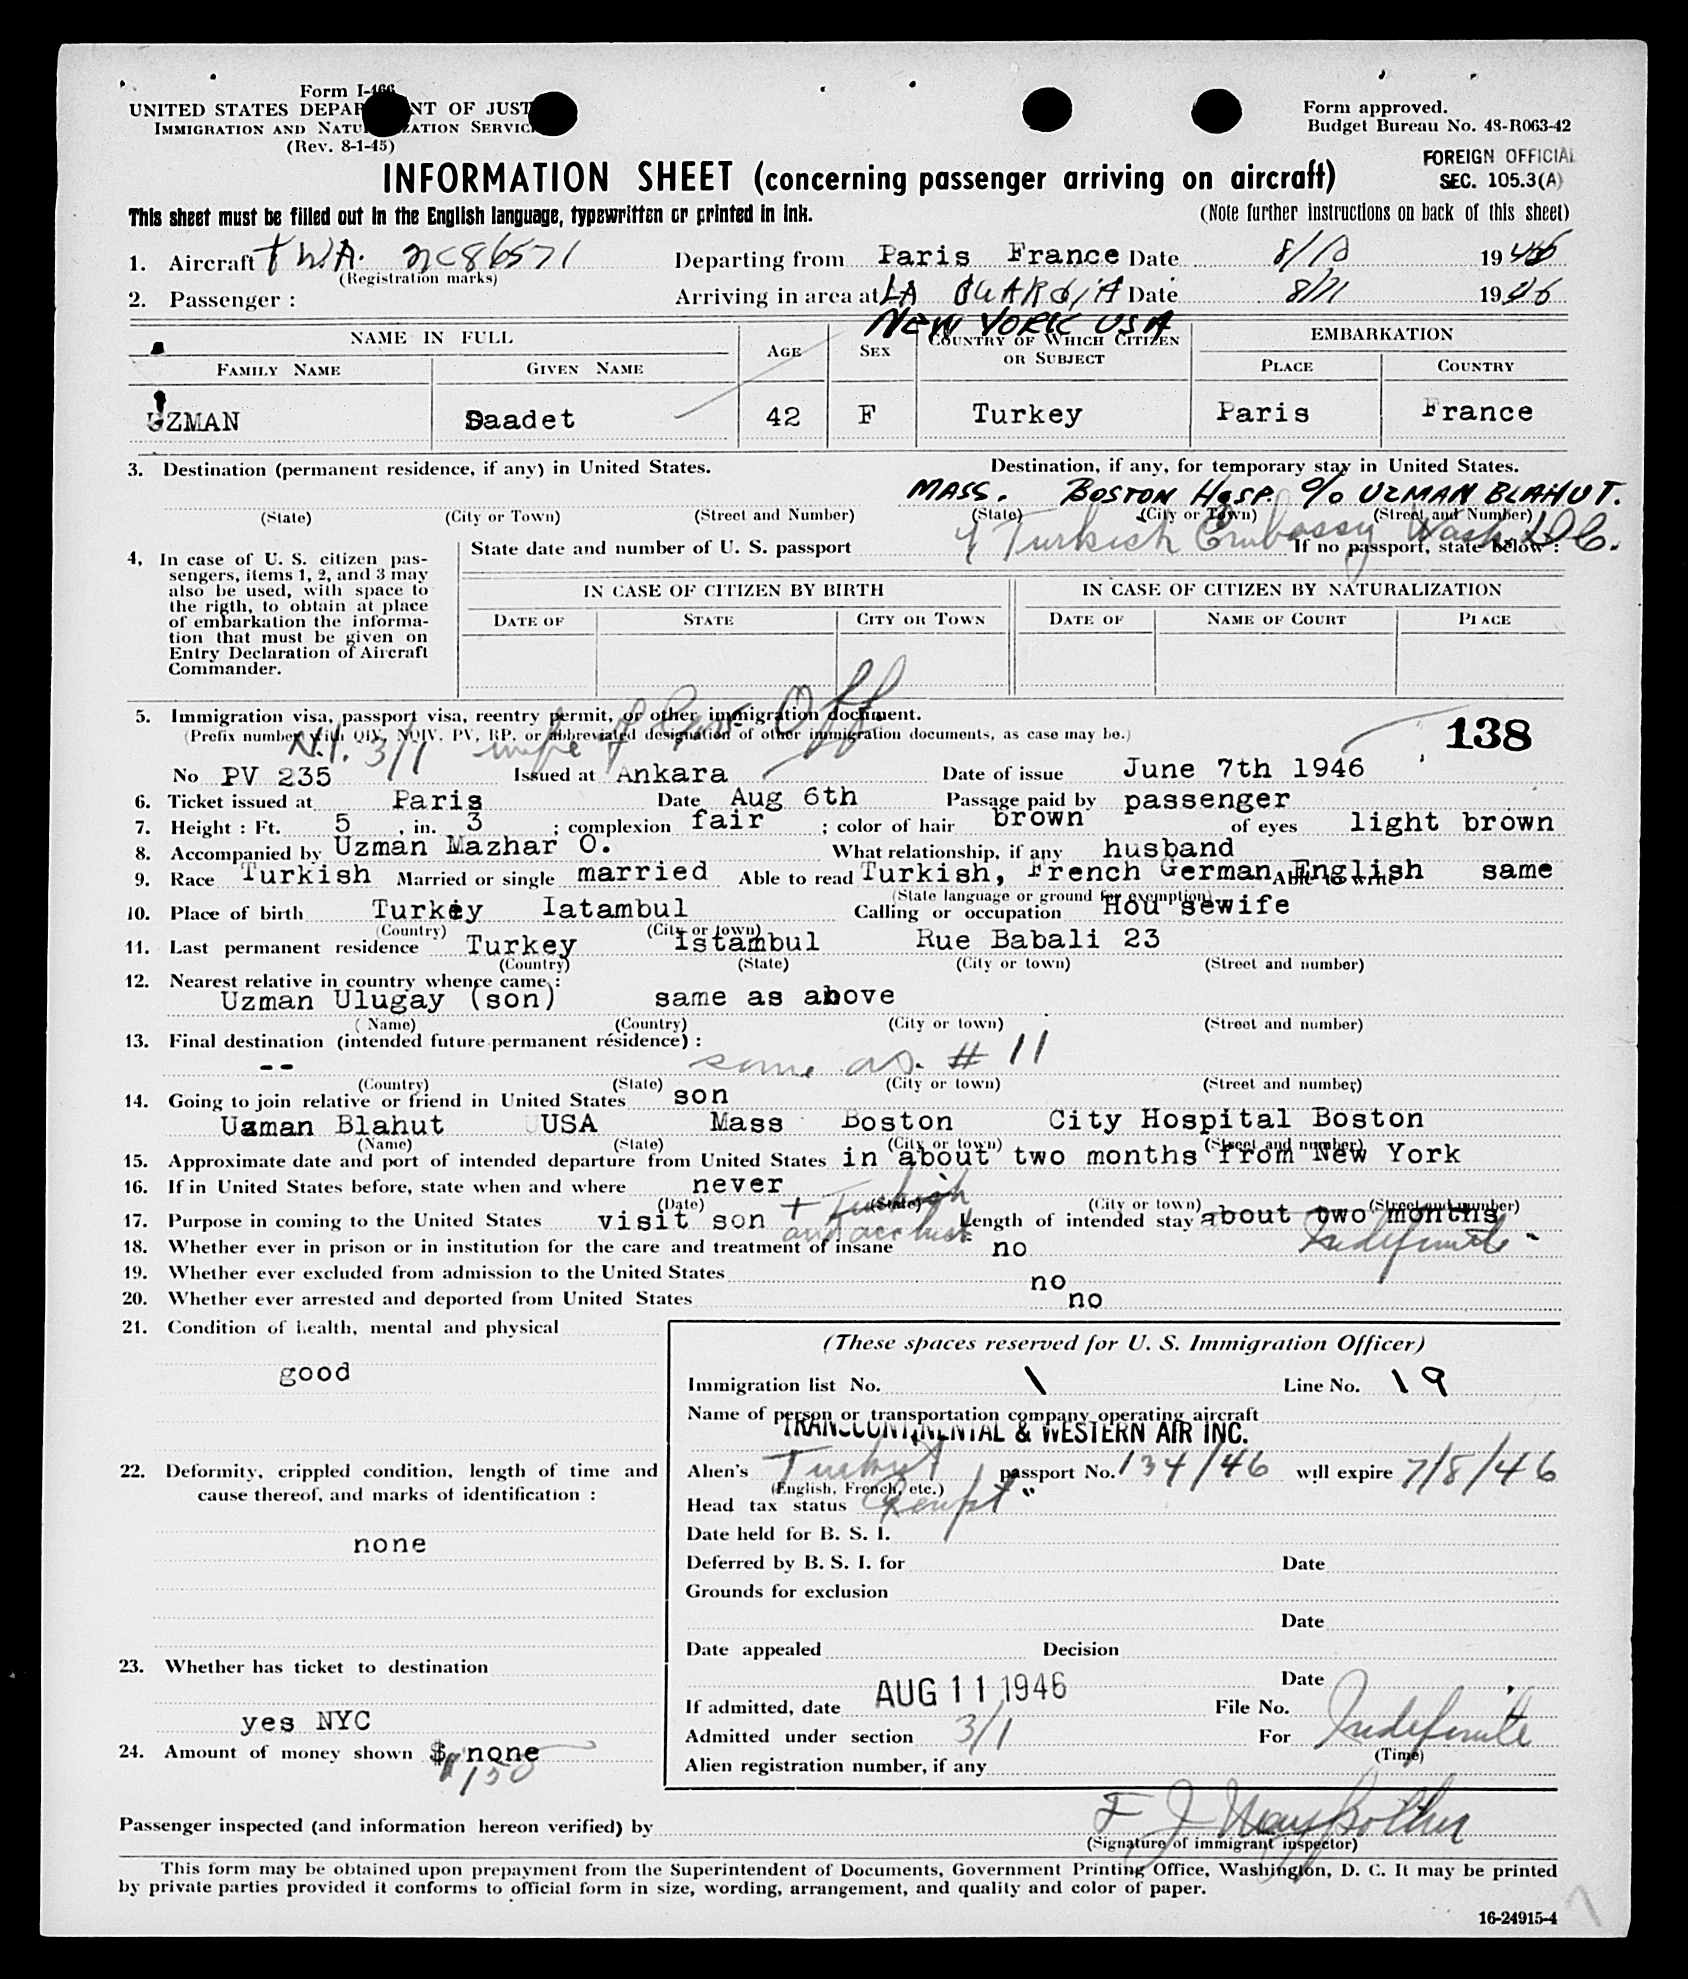 Form I-466
UNITED STATES DEPARTMENT OF JUSTICE
IMMIGRATION AND NATURALIZATION SERVICE
(Rev. 8-1-45)
Form approved.
Budget Bureau No. 43-R063-42
FOREIGN OFFICIAL
SEC. 105.3(A)
INFORMATION SHEET (concerning passenger arriving on aircraft)
This sheet must be filled out in the English language, typewritten or printed in ink. (Note further instructions on back of this sheet)
1. Aircraft TWA. NC86571 Departing from Paris France Date 8/10 1946
(Registration marks)
2. Passenger : Arriving in area at LA GUARDIA Date 8/11 1946
NEW YORK USA
NAME IN FULL AGE SEX COUNTRY OF WHICH CITIZEN OR SUBJECT EMBARKATION
FAMILY NAME GIVEN NAME PLACE COUNTRY
UZMAN Saadet 42 F Turkey Paris France
3. Destination (permanent residence, if any) in United States. Destination, if any, for temporary stay in United States.
MASS. BOSTON HOSP. c/o UZMAN BLAHUT.
(State) (City or Town) (Street and Number) (State) (City or Town) (Street and Number)
% Turkish Embassy Wash. D.C.
4. In case of U. S. citizen pas-
sengers, items 1, 2, and 3 may
also be used, with space to
the rigth, to obtain at place
of embarkation the informa-
tion that must be given on
Entry Declaration of Aircraft
Commander.
State date and number of U. S. passport If no passport, state below :
IN CASE OF CITIZEN BY BIRTH IN CASE OF CITIZEN BY NATURALIZATION
DATE OF STATE CITY OR TOWN DATE OF NAME OF COURT PLACE
5. Immigration visa, passport visa, reentry permit, or other immigration document.
(Prefix number with QIV, NQIV, PV, RP, or abbreviated designation of other immigration documents, as case may be.)
N.I. 3/1 wife of Gov. Off
138
No PV 235 Issued at Ankara Date of issue June 7th 1946
6. Ticket issued at Paris Date Aug 6th Passage paid by passenger
7. Height : Ft. 5 , in. 3 ; complexion fair ; color of hair brown of eyes light brown
8. Accompanied by Uzman Mazhar O. What relationship, if any husband
9. Race Turkish Married or single married Able to read Turkish, French German English Able to write same
(State language or ground for exemption)
10. Place of birth Turkey Iatambul Calling or occupation Housewife
(Country) (City or town)
11. Last permanent residence Turkey Istambul Rue Babali 23
(Country) (State) (City or town) (Street and number)
12. Nearest relative in country whence came :
Uzman Ulugay (son) same as above
(Name) (Country) (City or town) (Street and number)
13. Final destination (intended future permanent résidence) :
-- same as # 11
(Country) (State) (City or town) (Street and number)
14. Going to join relative or friend in United States son
Uzman Blahut USA Mass Boston City Hospital Boston
(Name) (State) (City or town) (Street and number)
15. Approximate date and port of intended departure from United States in about two months from New York
16. If in United States before, state when and where never
(Date) (State) (City or town) (Street and number)
17. Purpose in coming to the United States visit son + Length of intended stay about two months
Indefinite
18. Whether ever in prison or in institution for the care and treatment of insane no
19. Whether ever excluded from admission to the United States no
20. Whether ever arrested and deported from United States no
21. Condition of health, mental and physical
good
22. Deformity, crippled condition, length of time and
cause thereof, and marks of identification :
none
23. Whether has ticket to destination
yes NYC
24. Amount of money shown $ none
$150
(These spaces reserved for U. S. Immigration Officer)
Immigration list No. 1 Line No. 19
Name of person or transportation company operating aircraft
TRANSCONTINENTAL & WESTERN AIR INC.
Alien's Turkish passport No. 134/46 will expire 7/8/46
(English, French, etc.)
Head tax status Exempt
Date held for B. S. I.
Deferred by B. S. I. for Date
Grounds for exclusion
Date
Date appealed Decision
Date
If admitted, date AUG 11 1946 File No.
Admitted under section 3/1 For Indefinite
(Time)
Alien registration number, if any
Passenger inspected (and information hereon verified) by
(Signature of immigrant inspector)
This form may be obtained upon prepayment from the Superintendent of Documents, Government Printing Office, Washington, D. C. It may be printed
by private parties provided it conforms to official form in size, wording, arrangement, and quality and color of paper.
16-24915-4